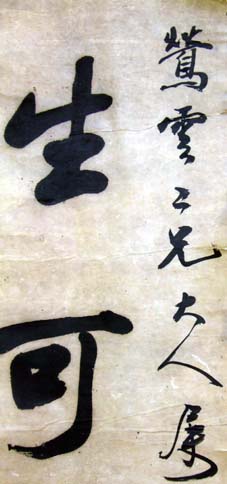 鶯雲二兄大人属
生可